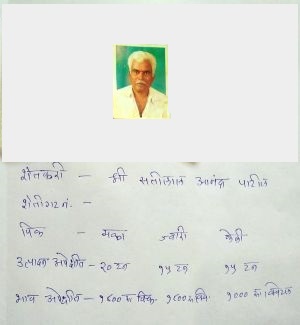 शेतकरी - श्री सतीलाल आनंदा पाटील
शेतीगट नं. -
पिक - मका ज्वारी केळी
उत्पादन अपेक्षीत - २० टन १५ टन १५ टन
भाव अपेक्षीत - १८०० रु क्विं. १८०० रु क्विं. १००० रु क्विंटल